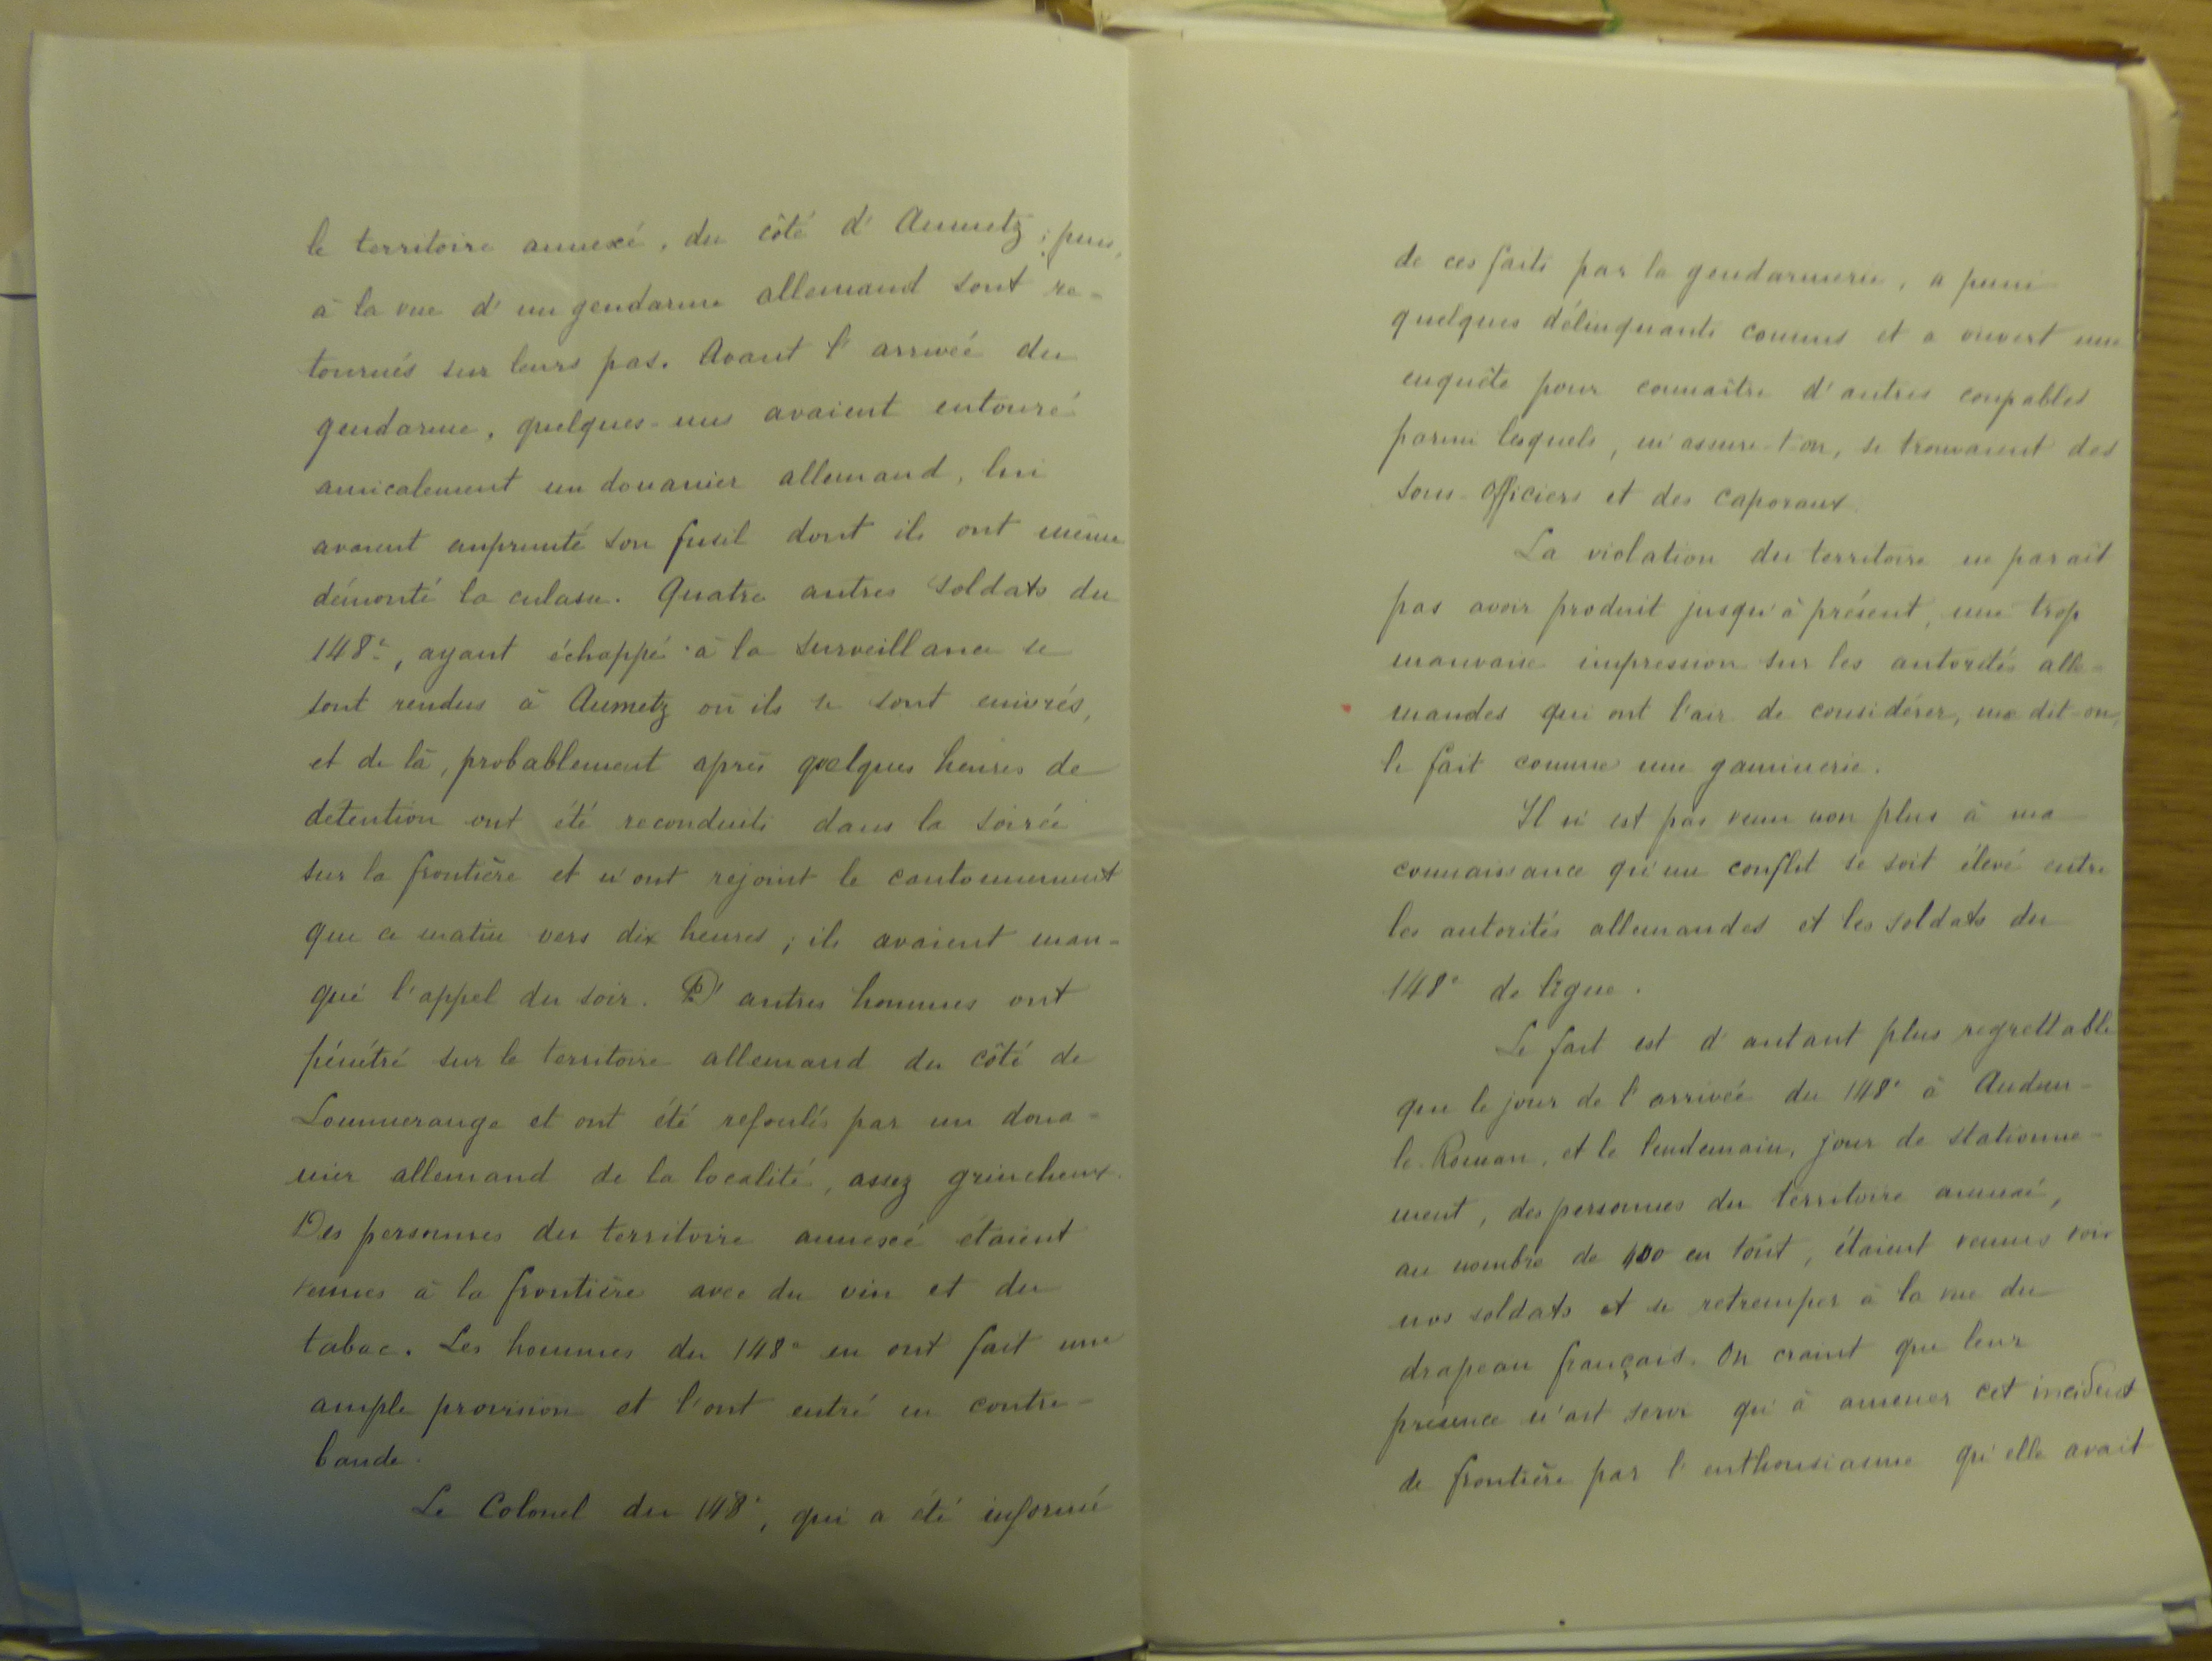 le territoire annexé, du côté d'Aumetz ; puis,
à la vue d'un gendarme allemand sont re-
tournés sur leurs pas. Avant l'arrivée du
gendarme, quelques-uns avaient entouré
amicalement un douanier allemand, lui
avaient emprunté son fusil dont ils ont même
démonté la culasse. Quatre autres soldats du
148e, ayant échappé à la surveillance se
sont rendus à Aumetz où ils se sont enivrés,
et de là, probablement après quelques heures de
détention ont été reconduits dans la soirée
sur la frontière et n'ont rejoint le cantonnement
que ce matin vers dix heures ; ils avaient man-
qué l'appel du soir. D'autres hommes ont
pénétré sur le territoire allemand du côté de
Lommerange et ont été refoulés par un doua-
nier allemand de la localité, assez grincheux.
Des personnes du territoire annexé étaient
venues à la frontière avec du vin et du
tabac. Les hommes du 148e en ont fait une
ample provision et l'ont entré en contre-
bande.
Le Colonel du 148e, qui a été informé
de ces faits par la gendarmerie, a puni
quelques délinquants connus et a ouvert une
enquête pour connaître d'autres coupables
parmi lesquels, m'assure-t-on, se trouvaient des
sous-officiers et des caporaux.
La violation du territoire ne paraît
pas avoir produit jusqu'à présent, une trop
mauvaise impression sur les autorités alle-
mandes qui ont l'air de considérer, me dit-on,
le fait comme une gaminerie.
Il n'est pas venu non plus à ma
connaissance qu'un conflit se soit élevé entre
les autorités allemandes et les soldats du
148e de ligne.
Le fait est d'autant plus regrettable
que le jour de l'arrivée du 148e à Audun-
le-Roman, et le lendemain, jour de stationne-
ment, des personnes du territoire annexé,
au nombre de 400 en tout, étaient venues voir
nos soldats et se retremper à la vue du
drapeau français. On craint que leur
présence n'ait servi qu'à amener cet incident
de frontière par l'enthousiasme qu'elle avait